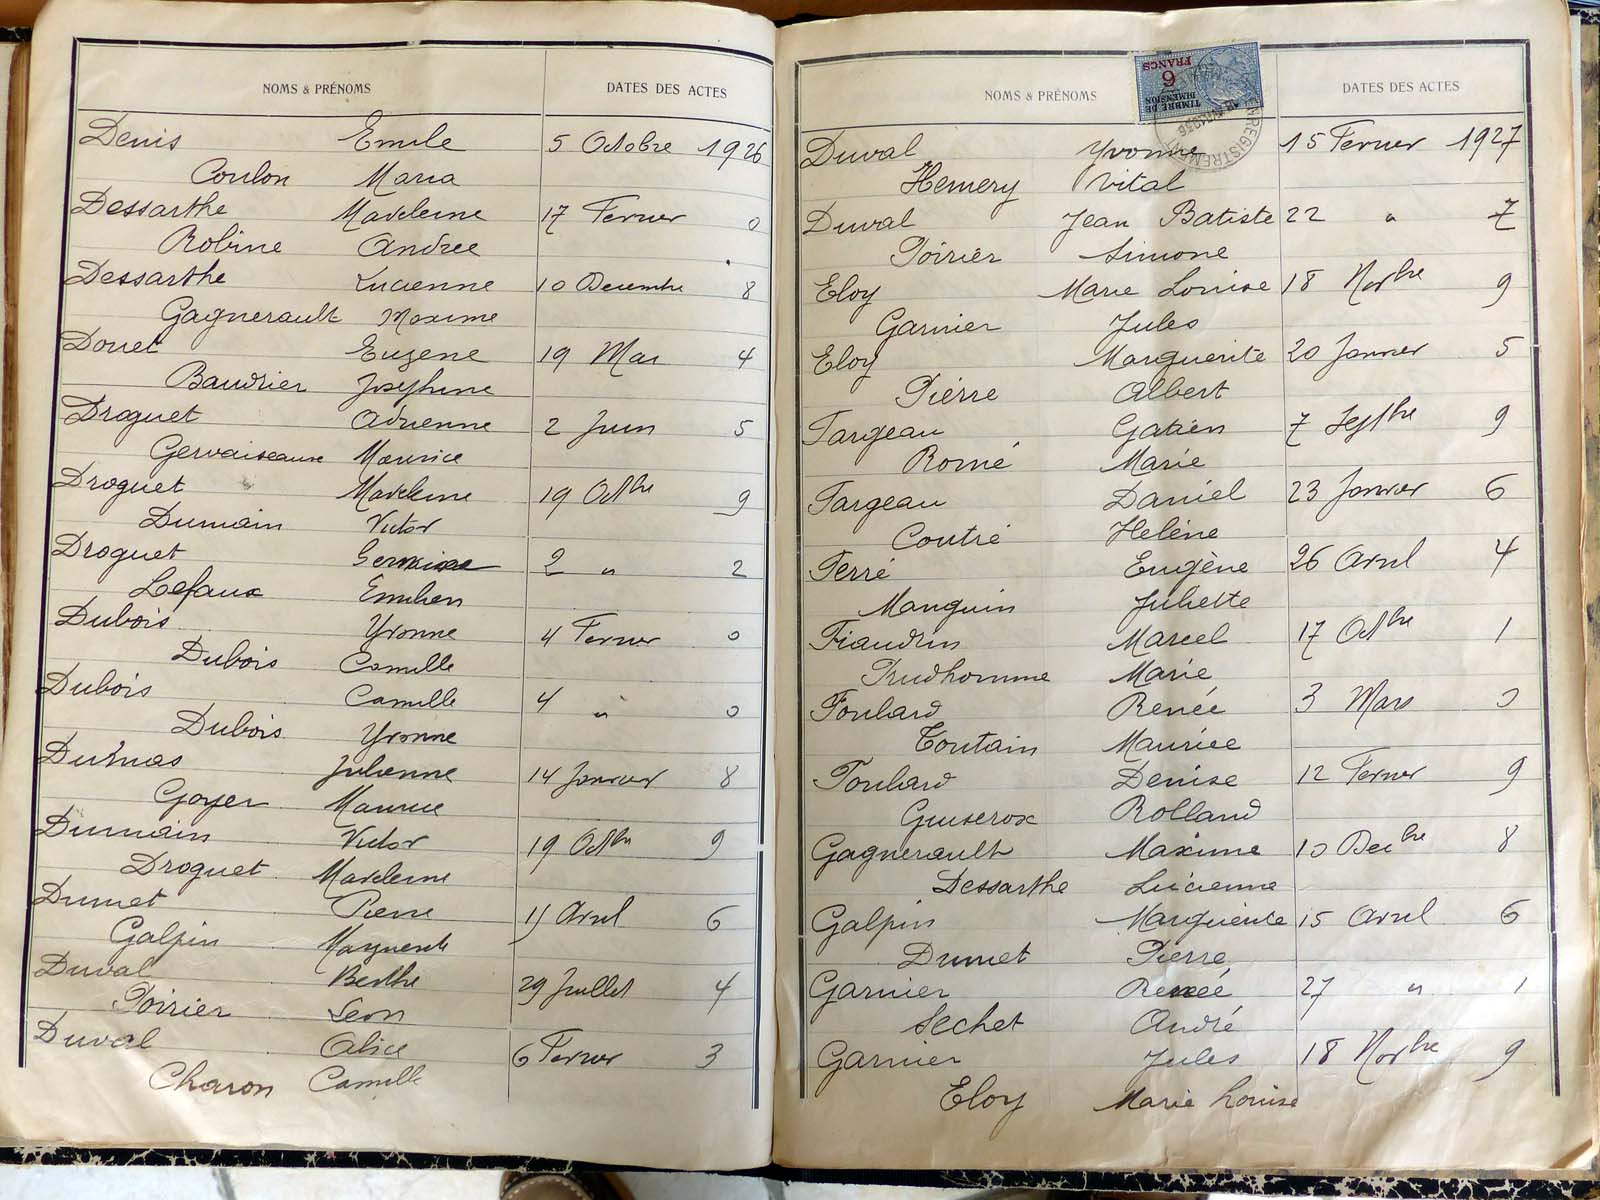 NOMS & PRÉNOMS DATES DES ACTES
Denis Emile 5 Octobre 1926
Coulon Maria
Dessarthe Madeleine 17 Fevrier 0
Robine Andree
Dessarthe Lucienne 10 Decembre 8
Gagnerault Maxime
Douet Eugene 19 Mai 4
Baudrier Josephine
Droguet Adrienne 2 Juin 5
Gervaiseaux Maurice
Droguet Madeleine 19 Octbre 9
Dumain Victor
Droguet Germaine 2 " 2
Lefaux Emilien
Dubois Yvonne 4 Fevrier 0
Dubois Camille
Dubois Camille 4 " 0
Dubois Yvonne
Julienne 14 Janvier 8
Goyer Maurice
Dumain Victor 19 Octbre 9
Droguet Madeleine
Dumet Pierre 15 Avril 6
Galpin Marguerite
Duval Berthe 29 Juillet 4
Poirier Leon
Duval Alice 6 Fevrier 3
Charon Camille
NOMS & PRÉNOMS DATES DES ACTES
TIMBRE DE DIMENSION
6 FRANCS
ENREGISTREMENT
Duval Yvonne 15 Fevrier 1927
Hemery Vital
Duval Jean Batiste 22 " 7
Poirier Simone
Eloy Marie Louise 18 Novbre 9
Garnier Jules
Eloy Marguerite 20 Janvier 5
Pierre Albert
Fargeau Gatien 7 Septbre 9
Romé Marie
Fargeau Daniel 23 Janvier 6
Coutré Helène
Ferré Eugène 26 Avril 4
Manguin Juliette
Fiaudrin Marcel 17 Octbre 1
Prudhomme Marie
Foulard Renée 3 Mars 0
Toutain Maurice
Foulard Denise 12 Fevrier 9
Rolland
Gagnerault Maxime 10 Decbre 8
Dessarthe Lucienne
Galpin Marguerite 15 Avril 6
Dumet Pierre
Garnier Renée 27 " 1
Sechet André
Garnier Jules 18 Novbre 9
Eloy Marie Louise